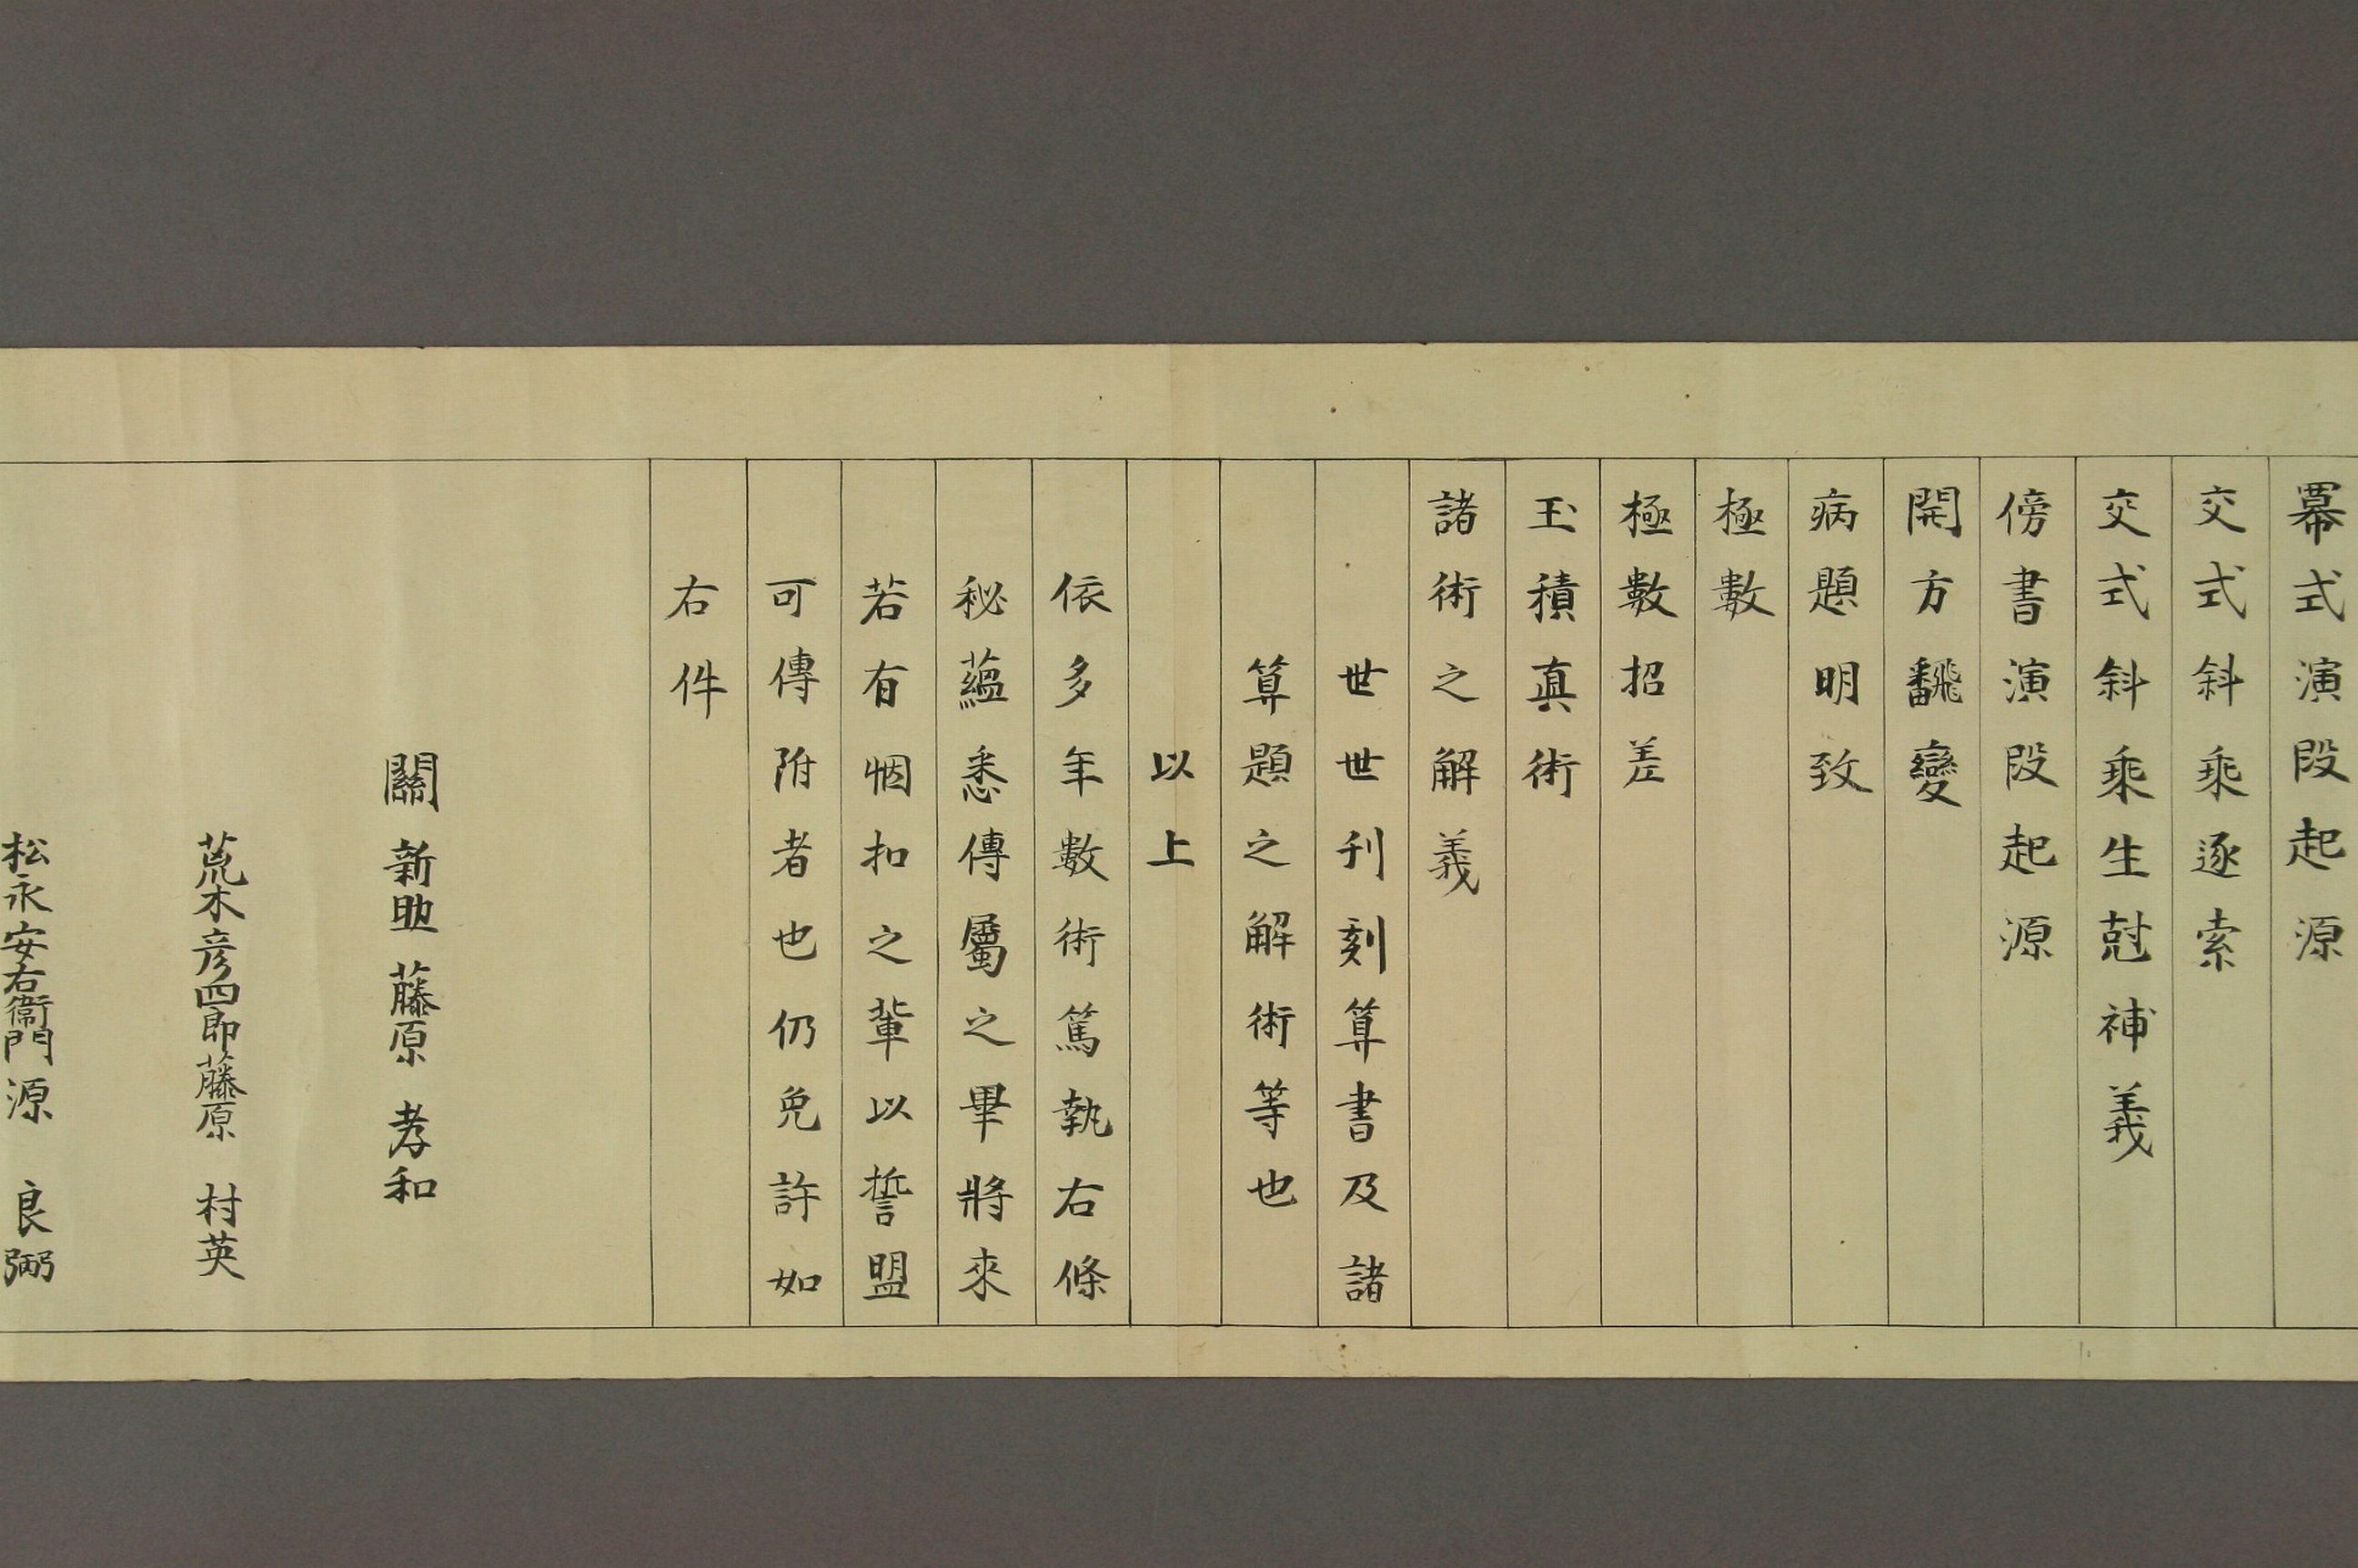 冪式演段起源
交式斜乘逐索
交式斜乘生尅補義
傍書演段起源
開方飜變
病題明致
極數
極數招差
玉積眞術
諸術之解義
世世刊刻算書及諸
算題之解術等也
以上
依多年數術篤執右條
秘蘊悉傳屬之畢將來
若有悃扣之輩以誓盟
可傳附者也仍免許如
右件
關新助藤原孝和
荒木彦四郎藤原村英
松永安右衞門源良弼